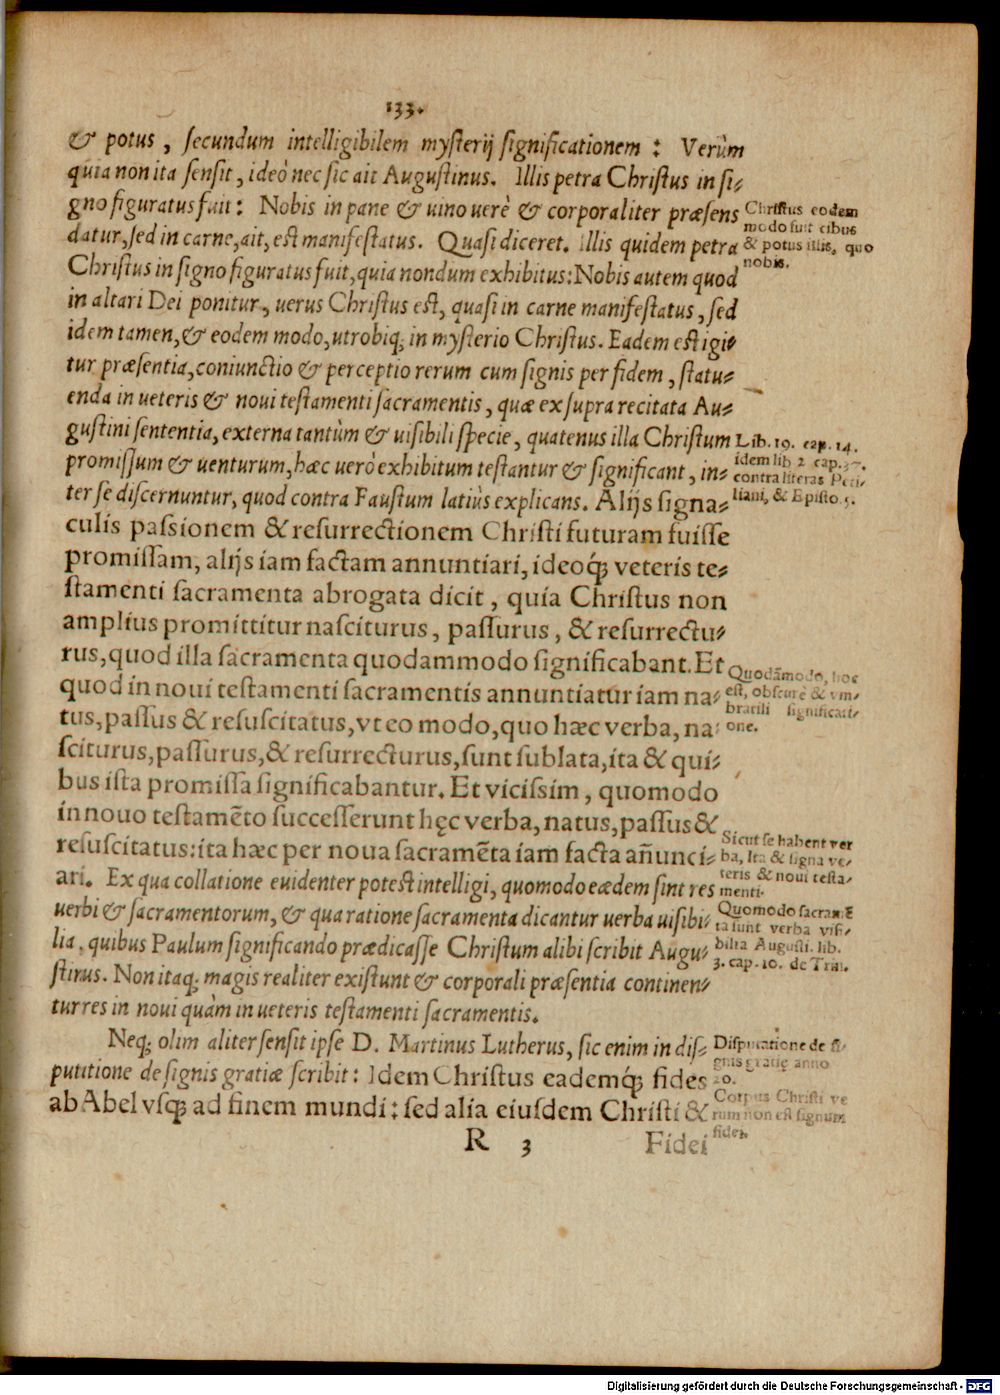 133.
& potus, ſecundum intelligibilem myſterij ſignificationem: Verùm
quia non ita ſenſit, ideò nec ſic ait Auguſtinus. Illis petra Chriſtus in ſi-
gno figuratus fuit: Nobis in pane & uino uerè & corporaliter præſens
datur, ſed in carne, ait, eſt manifeſtatus. Quaſi diceret. Illis quidem petra
Chriſtus in ſigno figuratus fuit, quia nondum exhibitus: Nobis autem quod
in altari Dei ponitur, uerus Chriſtus eſt, quaſi in carne manifeſtatus, ſed
idem tamen, & eodem modo, utrobiq; in myſterio Chriſtus. Eadem eſt igi-
tur præſentia, coniunctio & perceptio rerum cum ſignis per fidem, ſtatu-
enda in ueteris & noui teſtamenti ſacramentis, quæ ex ſupra recitata Au-
guſtini ſententia, externa tantùm & uiſibili ſpecie, quatenus illa Chriſtum
promiſſum & uenturum, hæc uerò exhibitum teſtantur & ſignificant, in-
ter ſe diſcernuntur, quod contra Fauſtum latiùs explicans. Alijs ſigna-
culis paſsionem & reſurrectionem Chriſti futuram fuiſſe
promiſſam, alijs iam factam annuntiari, ideoq́; veteris te-
ſtamenti ſacramenta abrogata dicit, quia Chriſtus non
amplius promittitur naſciturus, paſſurus, & reſurrectu-
rus, quod illa ſacramenta quodammodo ſignificabant. Et
quod in noui teſtamenti ſacramentis annuntiatur iam na-
tus, paſſus & reſuſcitatus, vt eo modo, quo hæc verba, na-
ſciturus, paſſurus, & reſurrecturus, ſunt ſublata, ita & qui-
bus iſta promiſſa ſignificabantur. Et viciſsim, quomodo
in nouo teſtamēto ſucceſſerunt hęc verba, natus, paſſus &
reſuſcitatus: ita hæc per noua ſacramēta iam facta añunci-
ari. Ex qua collatione euidenter poteſt intelligi, quomodo eædem ſint res
uerbi & ſacramentorum, & qua ratione ſacramenta dicantur uerba uiſibi-
lia, quibus Paulum ſignificando prædicaſſe Chriſtum alibi ſcribit Augu-
ſtinus. Non itaq; magis realiter exiſtunt & corporali præſentia continen-
tur res in noui quàm in ueteris teſtamenti ſacramentis.
Neq; olim aliter ſenſit ipſe D. Martinus Lutherus, ſic enim in diſ-
putitione de ſignis gratiæ ſcribit: Idem Chriſtus eademq́; fides
ab Abel vſq; ad finem mundi: ſed alia eiuſdem Chriſti &
R 3 Fidei
Chriſtus eodem
modo fuit cibus
& potus illis, quo
nobis.
Lib. 19. cap. 14.
idem lib 2 cap. 37.
contra literas Peti-
liani, & Epiſto. 5.
Quodãmodo, hoc
eſt, obſcurè & vm-
bratili ſignificati-
one.
Sicut ſe habent ver
ba, Ita & ſigna ve-
teris & noui teſta-
menti.
Quomodo ſacramẽ
ta ſint verba viſi-
bilia Auguſti. lib.
3. cap. 10. de Trin.
Diſputatione de ſi-
gnis gratię anno
20.
Corpus Chriſti ve
rum non eſt ſignum
fidei.
Digitalisierung gefördert durch die Deutsche Forschungsgemeinschaft - DFG